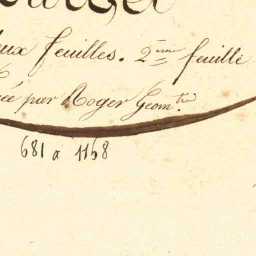 eux feuilles. 2ème feuille
ée par Roger Géomtre.
681 a 1168